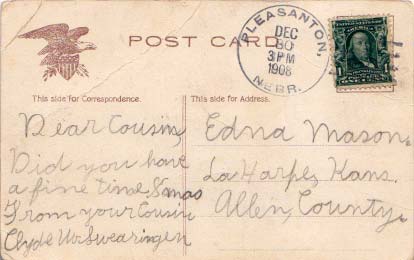 POST CARD
PLEASANTON,
DEC
30
3 PM
1908
NEBR.
1
This side for Correspondence.
This side for Address.
Dear Cousin,
Did you have
a fine time Xmas
From your Cousin
Clyde VanSwearingen
Edna Mason.
LaHarpe, Kans.
Allen, County.